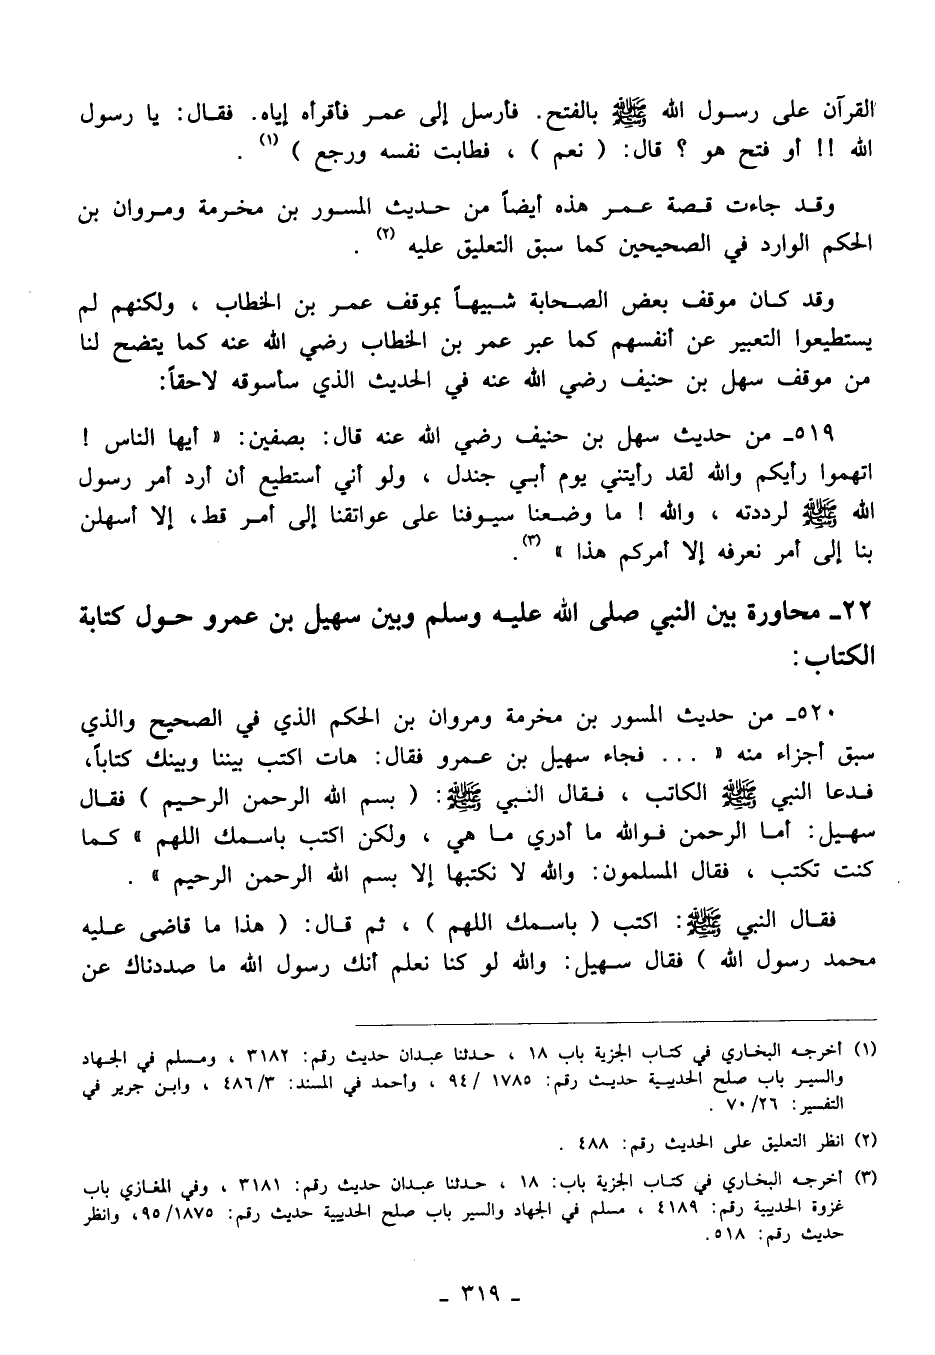 القرآن على رسول الله ﷺ بالفتح. فأرسل إلى عمر فأقرأه إياه. فقال: يا رسول
الله !! أو فتح هو ؟ قال: ( نعم ) ، فطابت نفسه ورجع ) (١) .
وقد جاءت قصة عمر هذه أيضاً من حديث المسور بن مخرمة ومروان بن
الحكم الوارد في الصحيحين كما سبق التعليق عليه (٢) .
وقد كان موقف بعض الصحابة شبيهاً بموقف عمر بن الخطاب ، ولكنهم لم
يستطيعوا التعبير عن أنفسهم كما عبر عمر بن الخطاب رضي الله عنه كما يتضح لنا
من موقف سهل بن حنيف رضي الله عنه في الحديث الذي سأسوقه لاحقاً:
٥١٩ـ من حديث سهل بن حنيف رضي الله عنه قال: بصفين: « أيها الناس !
اتهموا رأيكم والله لقد رأيتني يوم أبي جندل ، ولو أني أستطيع أن أرد أمر رسول
الله ﷺ لرددته ، والله ! ما وضعنا سيوفنا على عواتقنا إلى أمر قط، إلا أسهلن
بنا إلى أمر نعرفه إلا أمركم هذا » (٣).
٢٢ـ محاورة بين النبي صلى الله عليه وسلم وبين سهيل بن عمرو حول كتابة
الكتاب:
٥٢٠ـ من حديث المسور بن مخرمة ومروان بن الحكم الذي في الصحيح والذي
سبق أجزاء منه « ... فجاء سهيل بن عمرو فقال: هات اكتب بيننا وبينك كتاباً،
فدعا النبي ﷺ الكاتب ، فقال النبي ﷺ: ( بسم الله الرحمن الرحيم ) فقال
سهيل: أما الرحمن فوالله ما أدري ما هي ، ولكن اكتب باسمك اللهم » كما
كنت تكتب ، فقال المسلمون: والله لا نكتبها إلا بسم الله الرحمن الرحيم » .
فقال النبي ﷺ: اكتب ( باسمك اللهم ) ، ثم قال: ( هذا ما قاضى عليه
محمد رسول الله ) فقال سهيل: والله لو كنا نعلم أنك رسول الله ما صددناك عن
(١) أخرجه البخاري في كتاب الجزية باب ١٨ ، حدثنا عبدان حديث رقم: ٣١٨٢ ، ومسلم في الجهاد
والسير باب صلح الحديبية حديث رقم: ١٧٨٥ /٩٤ ، وأحمد في المسند: ٤٨٦/٣ ، وابن جرير في
التفسير: ٧٠/٢٦ .
(٢) انظر التعليق على الحديث رقم: ٤٨٨ .
(٣) أخرجه البخاري في كتاب الجزية باب: ١٨ ، حدثنا عبدان حديث رقم: ٣١٨١ ، وفي المغازي باب
غزوة الحديبية رقم: ٤١٨٩ ، مسلم في الجهاد والسير باب صلح الحديبية حديث رقم: ٩٥/١٨٧٥، وانظر
حديث رقم: ٥١٨.
ـ ٣١٩ ـ